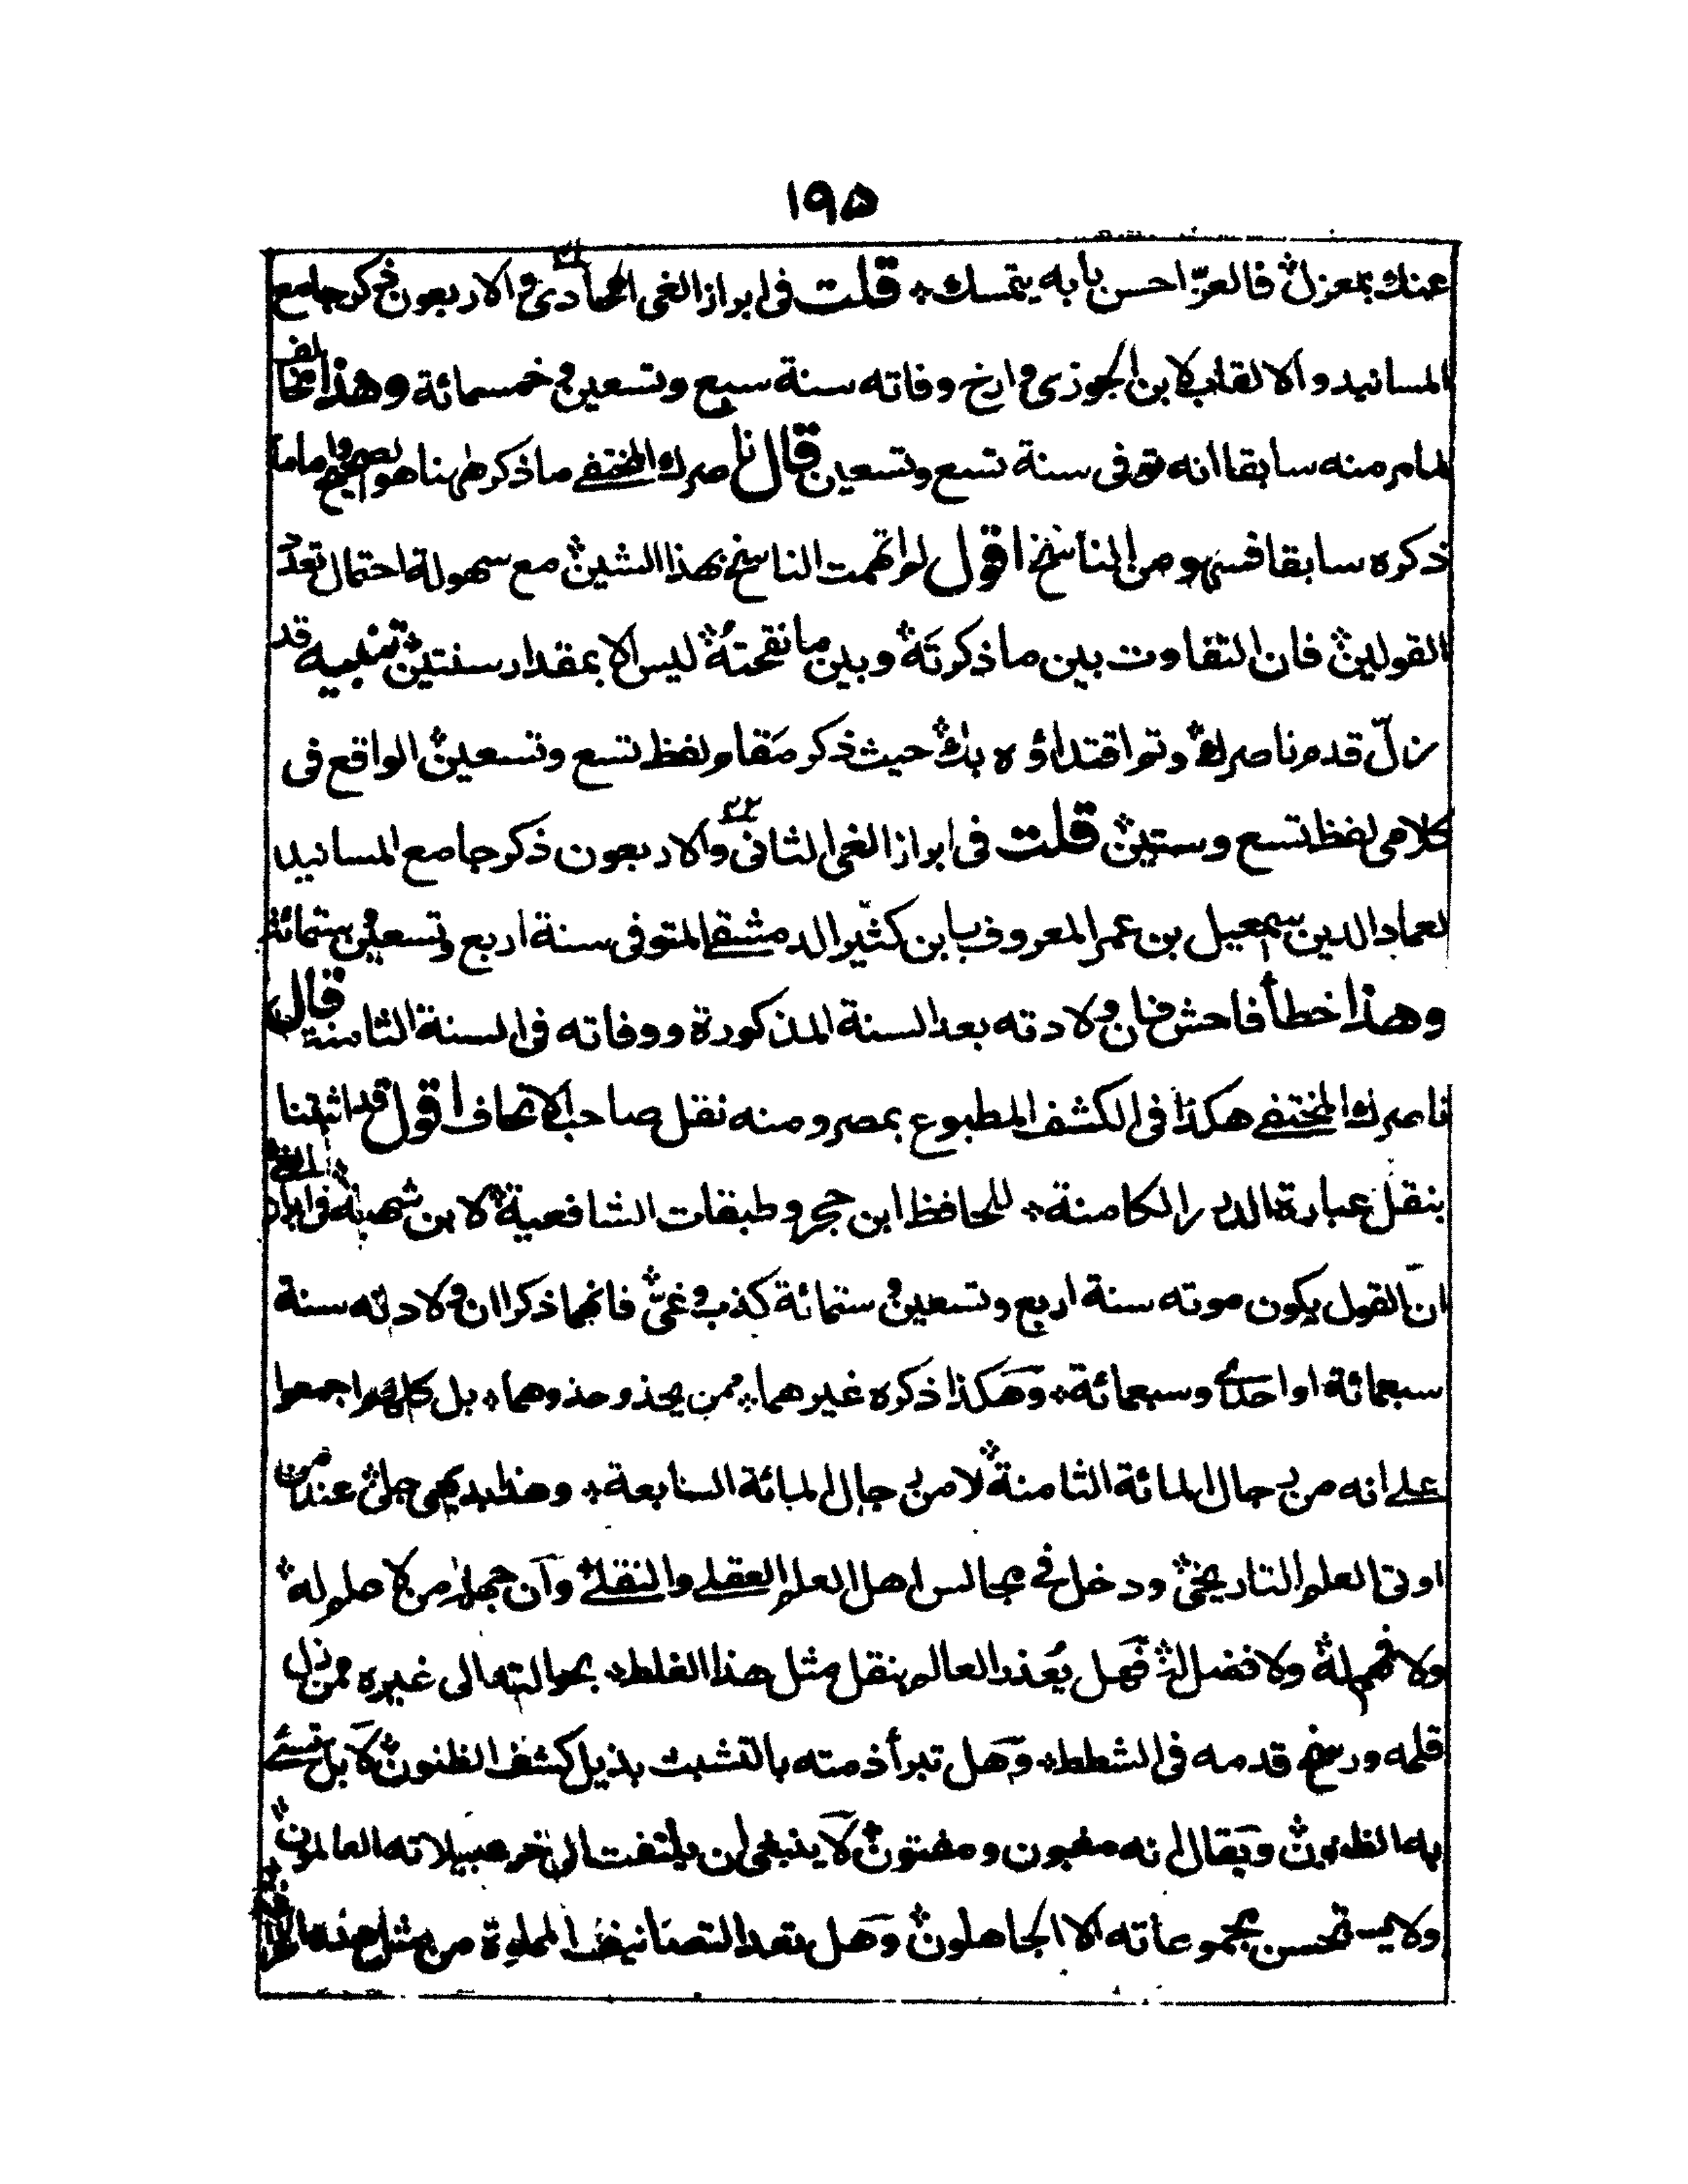 ١٩٥
عنك بمعزل فالعزّ احسن بابه يتمسك قلت فى ابراز الغى الحادى والاربعون ذكر جامع
المسانيد والالقاب لابن الجوزى وارخ وفاته سنة سبع وتسعين وخمسمائة وهذا مخالف
لما مر منه سابقا انه توفى سنة تسع وتسعين قال ناصرك المختفے ما ذكر ههنا هو الصحيح واما ما
ذكره سابقا فسهو من الناسخ اقول لو اتهمت الناسخ بهذا الشين مع سهولة احتمال تعدد
القولين فان التفاوت بين ما ذكرتَه وبين ما نقحتُه ليس الا بمقدار سنتين تنبيه قد
زلّ قدم ناصرك وتم اقتداؤه بك حيث ذكر مَقام لفظ تسع وتسعين الواقع فى
كلامى لفظ تسع وستين قلت فى ابراز الغى الثانى والاربعون ذكر جامع المسانيد
لعماد الدين اسمعيل بن عمر المعروف بابن كثير الدمشقے المتوفى سنة اربع وتسعين وستمائة
وهذا خطأ فاحش فان ولادته بعد السنة المذكورة ووفاته فى السنة الثامنة قال
ناصرك المختفے هكذا فى الكشف المطبوع بمصر ومنه نقل صاحب الاتحاف اقول قد اثبتنا
بنقل عبارة الدرر الكامنة للحافظ ابن حجر وطبقات الشافعية لابن شهبة فى ابراز الغى
انّ القول بكون موته سنة اربع وتسعين وستمائة كذب وغىّ فانهما ذكرا ان ولادته سنة
سبعمائة او احدى وسبعمائة وهكذا ذكره غيرهما ممن يحذو حذوهما بل كلهم اجمعوا
علے انه من رجال المائة الثامنة لا من رجال المائة السابعة وهذا بديهى جلى عند من
اوتى العلم التاريخى ودخل فى مجالس اهل العلم العقلے والنقلے وان جهله من لا علم له
ولا فهم له ولا فضل له فهل يُعذر العالم بنقل مثل هذا الغلط بحوالته الى غيره ممن زل
قلمه ورسخ قدمه فى الشطط وهل تبرأ ذمته بالتشبث بذيل كشف الظنون لا بل تسئ
به الظنون ويقال انه مغبون ومفتون لا ينبغى ان يلتفت الى تحصيلاته العالمون
ولا يستحسن مجموعاته الا الجاهلون وهل تعد التصانيف المملوة من مثل هذه